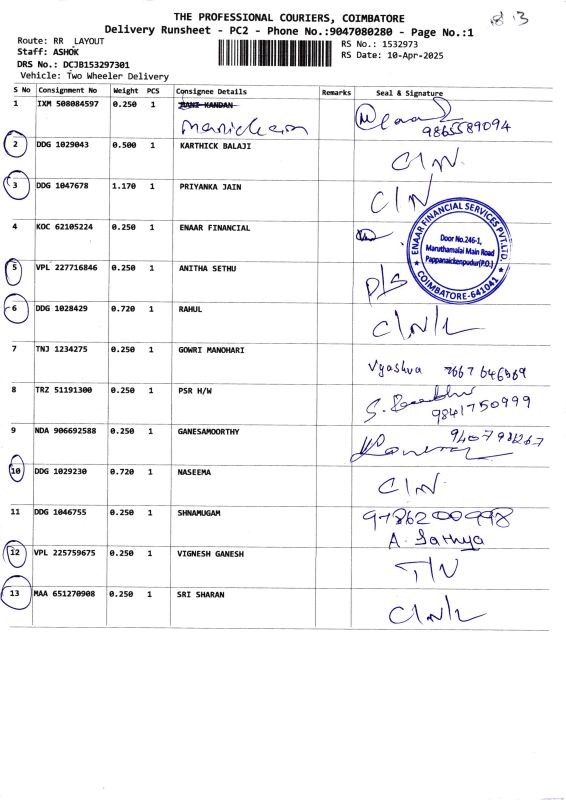 THE PROFESSIONAL COURIERS, COIMBATORE
Delivery Runsheet - PC2 - Phone No.:9047080280 - Page No.:1
Route: RR LAYOUT
Staff: ASHOK
DRS No.: DCJB153297301
Vehicle: Two Wheeler Delivery
RS No.: 1532973
RS Date: 10-Apr-2025
S No Consignment No Weight PCS Consignee Details Remarks Seal & Signature
1 IXM 508084597 0.250 1 MANI KANDAN
Manickam 9865589094
2 DDG 1029043 0.500 1 KARTHICK BALAJI C/N.
3 DDG 1047678 1.170 1 PRIYANKA JAIN C/N
4 KOC 62105224 0.250 1 ENAAR FINANCIAL
ENAAR FINANCIAL SERVICES PVT.LTD.
Door No.246-1,
Maruthamalai Main Road
Pappanaickenpudur(P.O.)
COIMBATORE-641041
5 VPL 227716846 0.250 1 ANITHA SETHU D/S
6 DDG 1028429 0.720 1 RAHUL C/N/L
7 TNJ 1234275 0.250 1 GOWRI MANOHARI
8 TRZ 51191300 0.250 1 PSR H/W
9841750999
9 NDA 906692588 0.250 1 GANESAMOORTHY
10 DDG 1029230 0.720 1 NASEEMA C/N.
11 DDG 1046755 0.250 1 SHNAMUGAM
A. Sathya
12 VPL 225759675 0.250 1 VIGNESH GANESH T/N
13 MAA 651270908 0.250 1 SRI SHARAN C/N/L